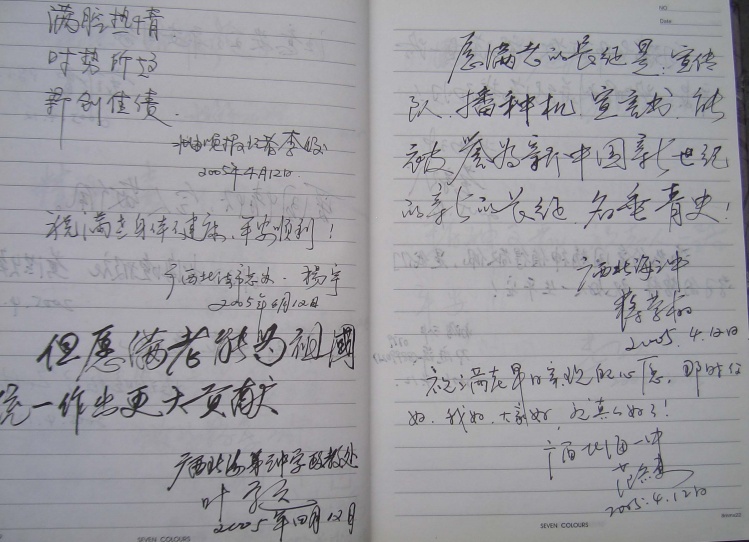 满腔热情
时势所为
新创佳绩.
晚报记者李
2005年4月12日
祝满老身体健康、平安顺利!
广西北海市志办·杨宇
2005年4月12日
但愿满老能为祖國
统一作出更大贡献
广西北海第三中学政教处
叶
2005年四月12日
SEVEN COLOURS
NO.
Date
愿满老的长征是:宣传
队、播种机、宣言书,能
被誉为新中国新世纪
的新的长征,名垂青史!
广西北海三中
2005.4.12日
祝满老早日实现的心愿,那时你
好、我好、大家好,
广西北海一中
2005.4.12日
SEVEN COLOURS